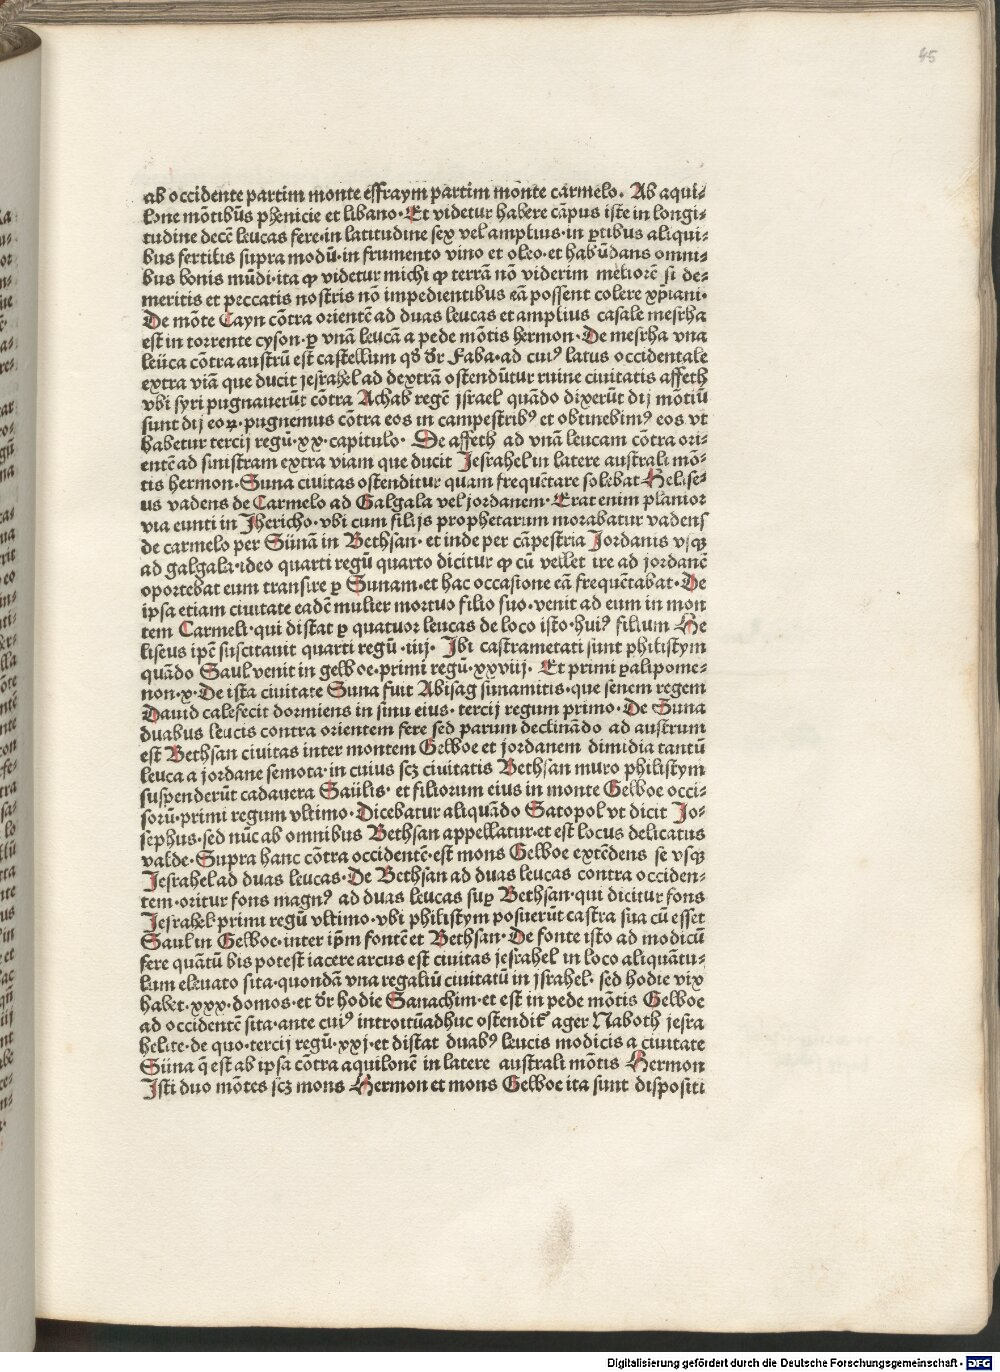 45
ab occidente partim monte effraym partim monte carmelo. Ab aqui⸗
lone mōtibus phenicie et libano· Et videtur habere cāpus iste in longi⸗
tudine decē leucas fere·in latitudine sex vel amplius·in ꝑtibus aliqui⸗
bus fertilis supra modū·in frumento vino et oleo·et habūdans omni⸗
bus bonis mūdi·ita ꝙ videtur michi ꝙ terrā nō viderim meliorē si de⸗
meritis et peccatis nostris nō impedientibus eā possent colere xp̄iani·
De mōte Cayn cōtra orientē ad duas leucas et amplius casale mesrha
est in torrente cyson·ꝑ vnā leucā a pede mōtis hermon· De mesrha vna
leuca cōtra austrū est castellum qd̄ dr̄ Faba·ad cuiꝰ latus occidentale
extra viā que ducit jesrahel ad dextrā ostendūtur ruine ciuitatis affeth
vbi syri pugnauerūt cōtra Achab regē jsrael quādo dixerūt dij mōtiū
sunt dij eoꝝ·pugnemus cōtra eos in campestribꝰ et obtinebimꝰ eos vt
habetur tercij regū·xx·capitulo· De affeth ad vnā leucam cōtra ori⸗
entē ad sinistram extra viam que ducit Jesrahel in latere australi mō⸗
tis hermon·Suna ciuitas ostenditur quam frequētare solebat Helise⸗
us vadens de Carmelo ad Galgala vel jordanem· Erat enim planior
via eunti in Jhericho·vbi cum filijs prophetarum morabatur vadens
de carmelo per Sunā in Bethsan·et inde per cāpestria Jordanis vsqꝫ
ad galgala·ideo quarti regū quarto dicitur ꝙ cū vellet ire ad jordanē
oportebat eum transire ꝑ Sunam·et hac occasione eā frequētabat· De
ipsa etiam ciuitate eadē mulier mortuo filio suo·venit ad eum in mon
tem Carmeli·qui distat ꝑ quatuor leucas de loco isto·huiꝰ filium He
liseus ipē suscitauit quarti regū·iiij· Ibi castrametati sunt philistym
quādo Saul venit in gelboe·primi regū·xxviij· Et primi ꝑalipome⸗
non·x· De ista ciuitate Suna fuit Abisag sunamitis·que senem regem
Dauid calefecit dormiens in sinu eius·tercij regum primo· De Suna
duabus leucis contra orientem fere sed parum declinādo ad austrum
est Bethsan ciuitas inter montem Gelboe et jordanem dimidia tantū
leuca a jordane semota·in cuius scꝫ ciuitatis Bethsan muro philistym
suspenderūt cadauera Saulis·et filiorum eius in monte Gelboe occi⸗
sorū·primi regum vltimo·Dicebatur aliquādo Satopol vt dicit Jo⸗
sephus·sed nūc ab omnibus Bethsan appellatur·et est locus delicatus
valde·Supra hanc cōtra occidentē·est mons Gelboe extēdens se vsqꝫ
Jesrahel ad duas leucas·De Bethsan ad duas leucas contra occiden⸗
tem·oritur fons magnꝰ ad duas leucas suꝑ Bethsan·qui dicitur fons
Jesrahel·primi regū vltimo·vbi philistym posuerūt castra sua cū esset
Saul in Gelboe·inter ip̄m fontē et Bethsan· De fonte isto ad modicū
fere quātū bis potest iacere arcus est ciuitas jesrahel in loco aliquātu⸗
lum eleuato sita·quondā vna regaliū ciuitatū in jsrahel· sed hodie vix
habet·xxx·domos·et dr̄ hodie Sanachim·et est in pede mōtis Gelboe
ad occidentē sita·ante cuiꝰ introitūadhuc ostendit᷑ ager Naboth jesra
helite·de quo·tercij regū·xxj·et distat duabꝰ leucis modicis a ciuitate
Suna q̄ est ab ipsa cōtra aquilonē in latere australi mōtis Hermon
Isti duo mōtes scꝫ mons Hermon et mons Gelboe ita sunt dispositi
Digitalisierung gefördert durch die Deutsche Forschungsgemeinschaft - DFG